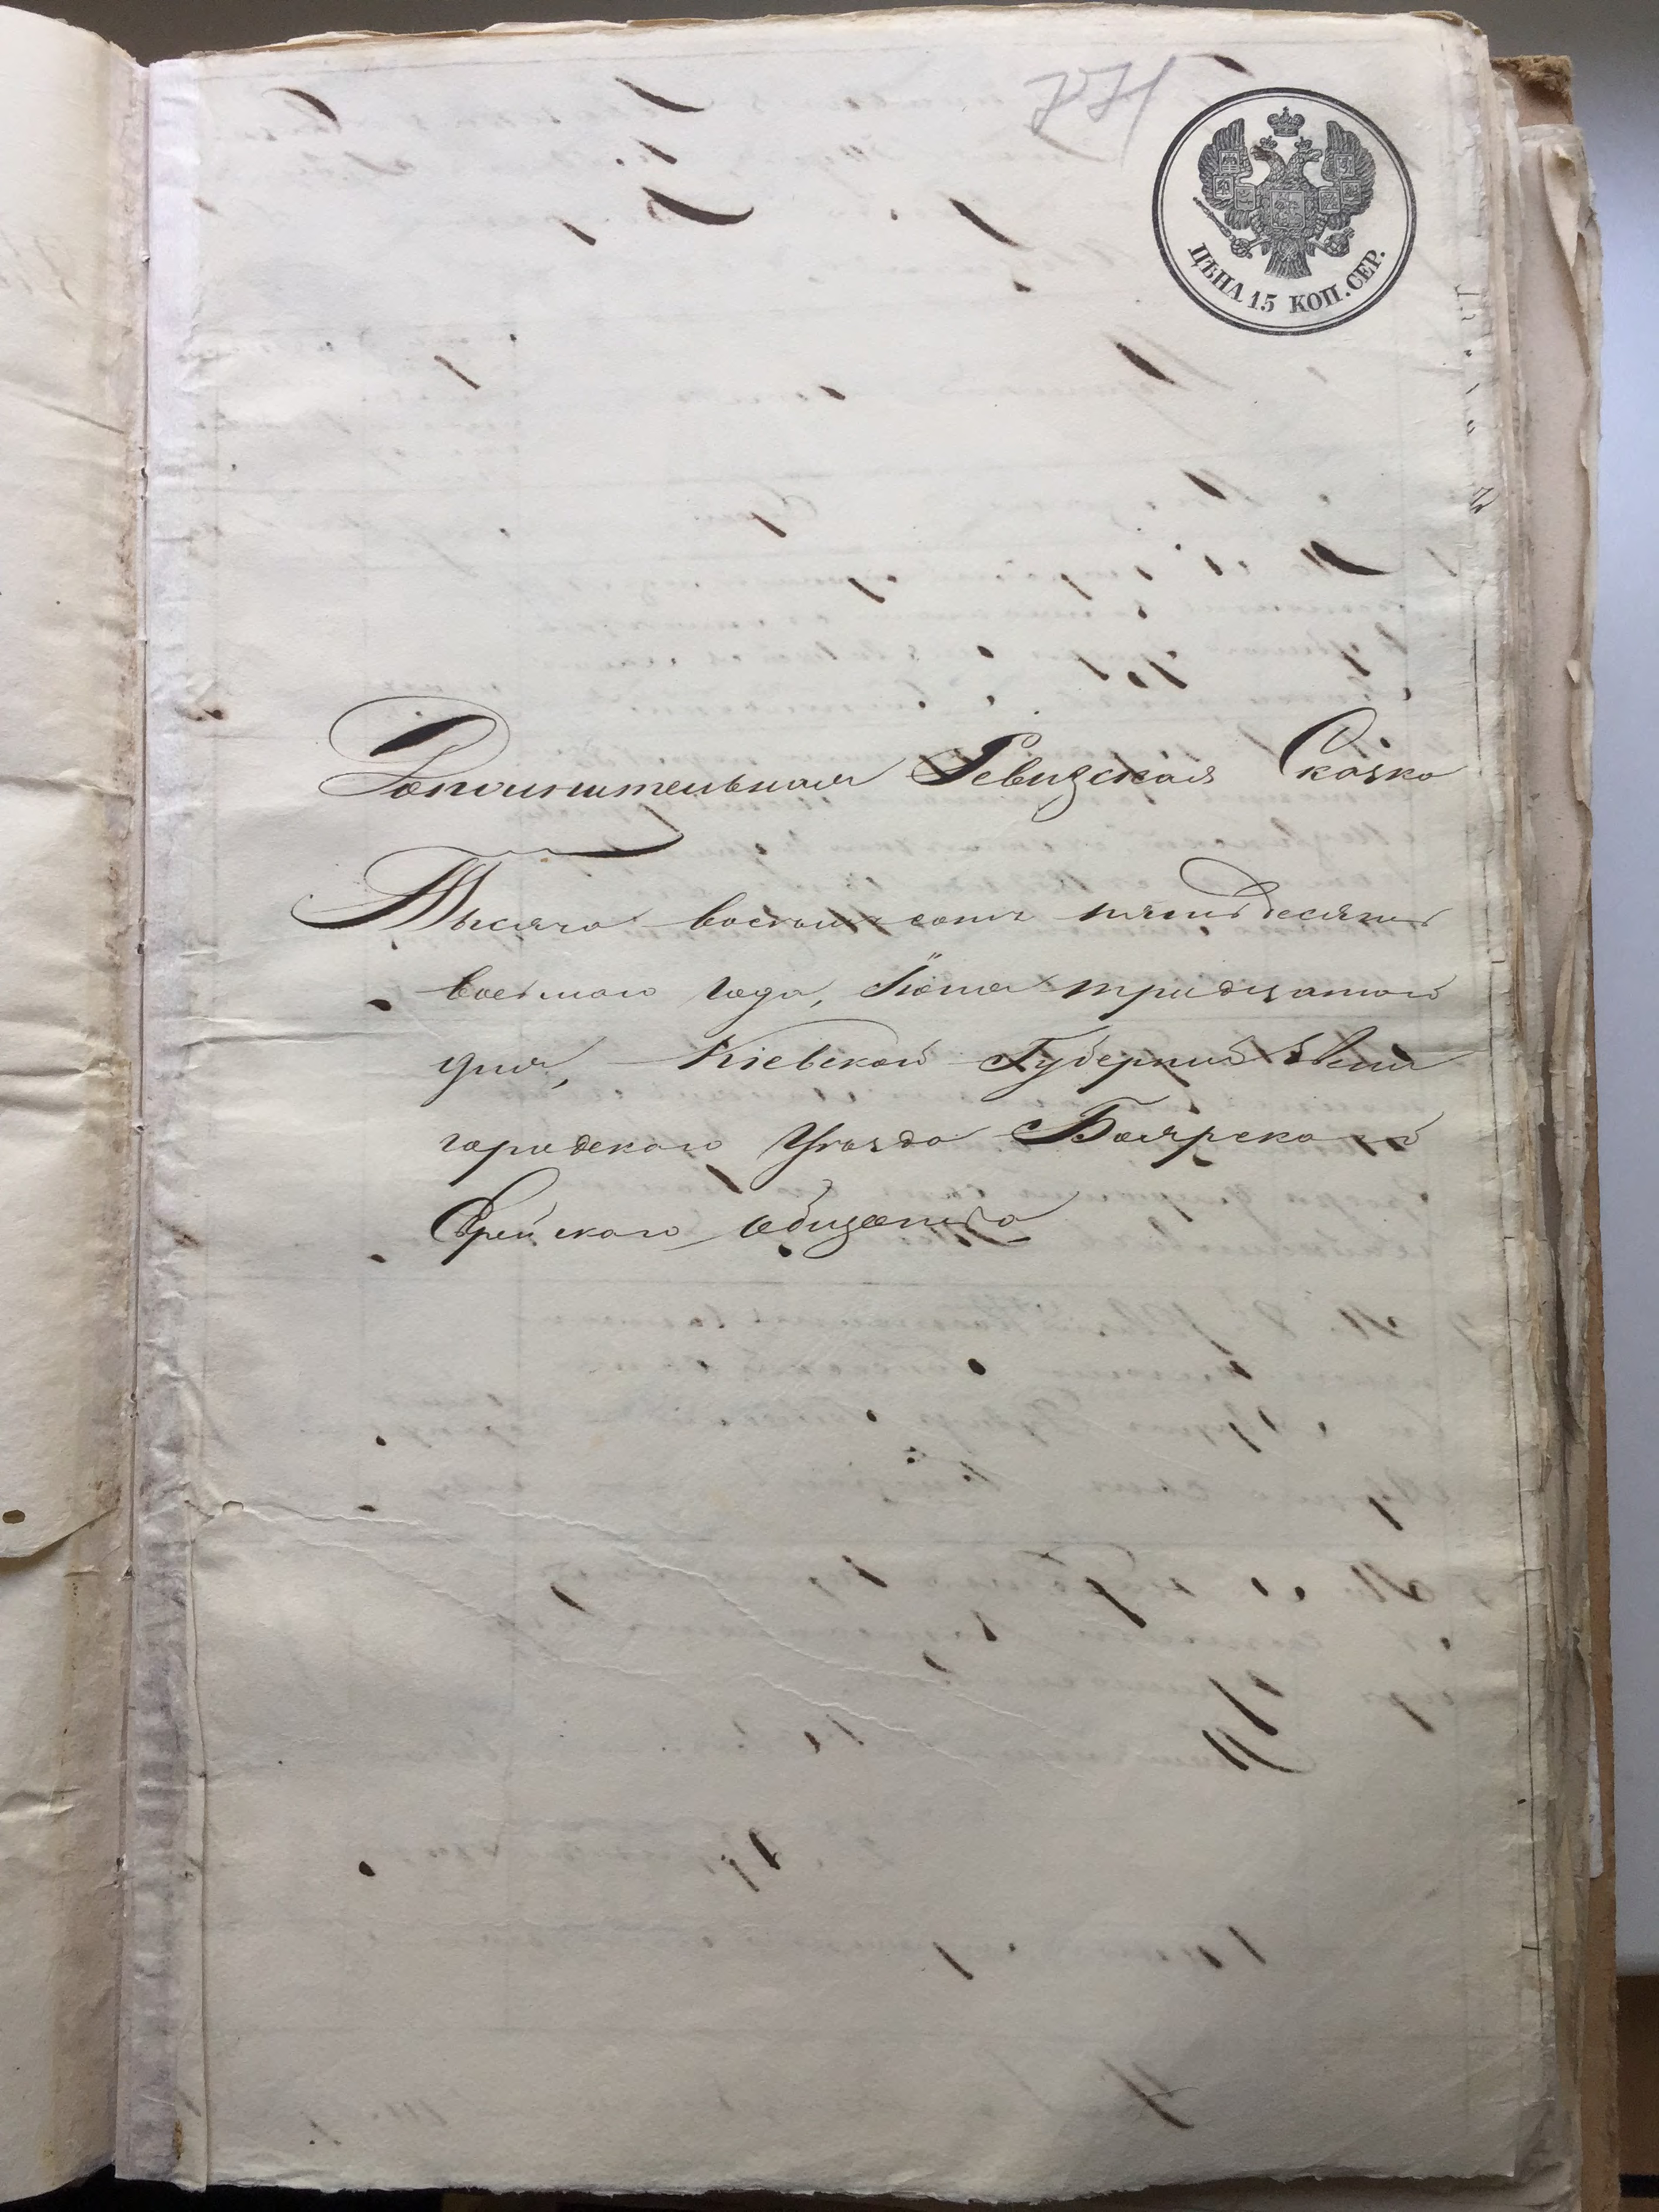 771
ЦѢНА 15 КОП. СЕР.
Дополнительная Ревизская Сказка
Тысяча восемь сотъ пятьдесятъ
восьмаго года, Іюня тридцатаго
дня, Кіевской Губерніи Звени
городскаго Уѣзда Боярскаго
Еврейскаго общества